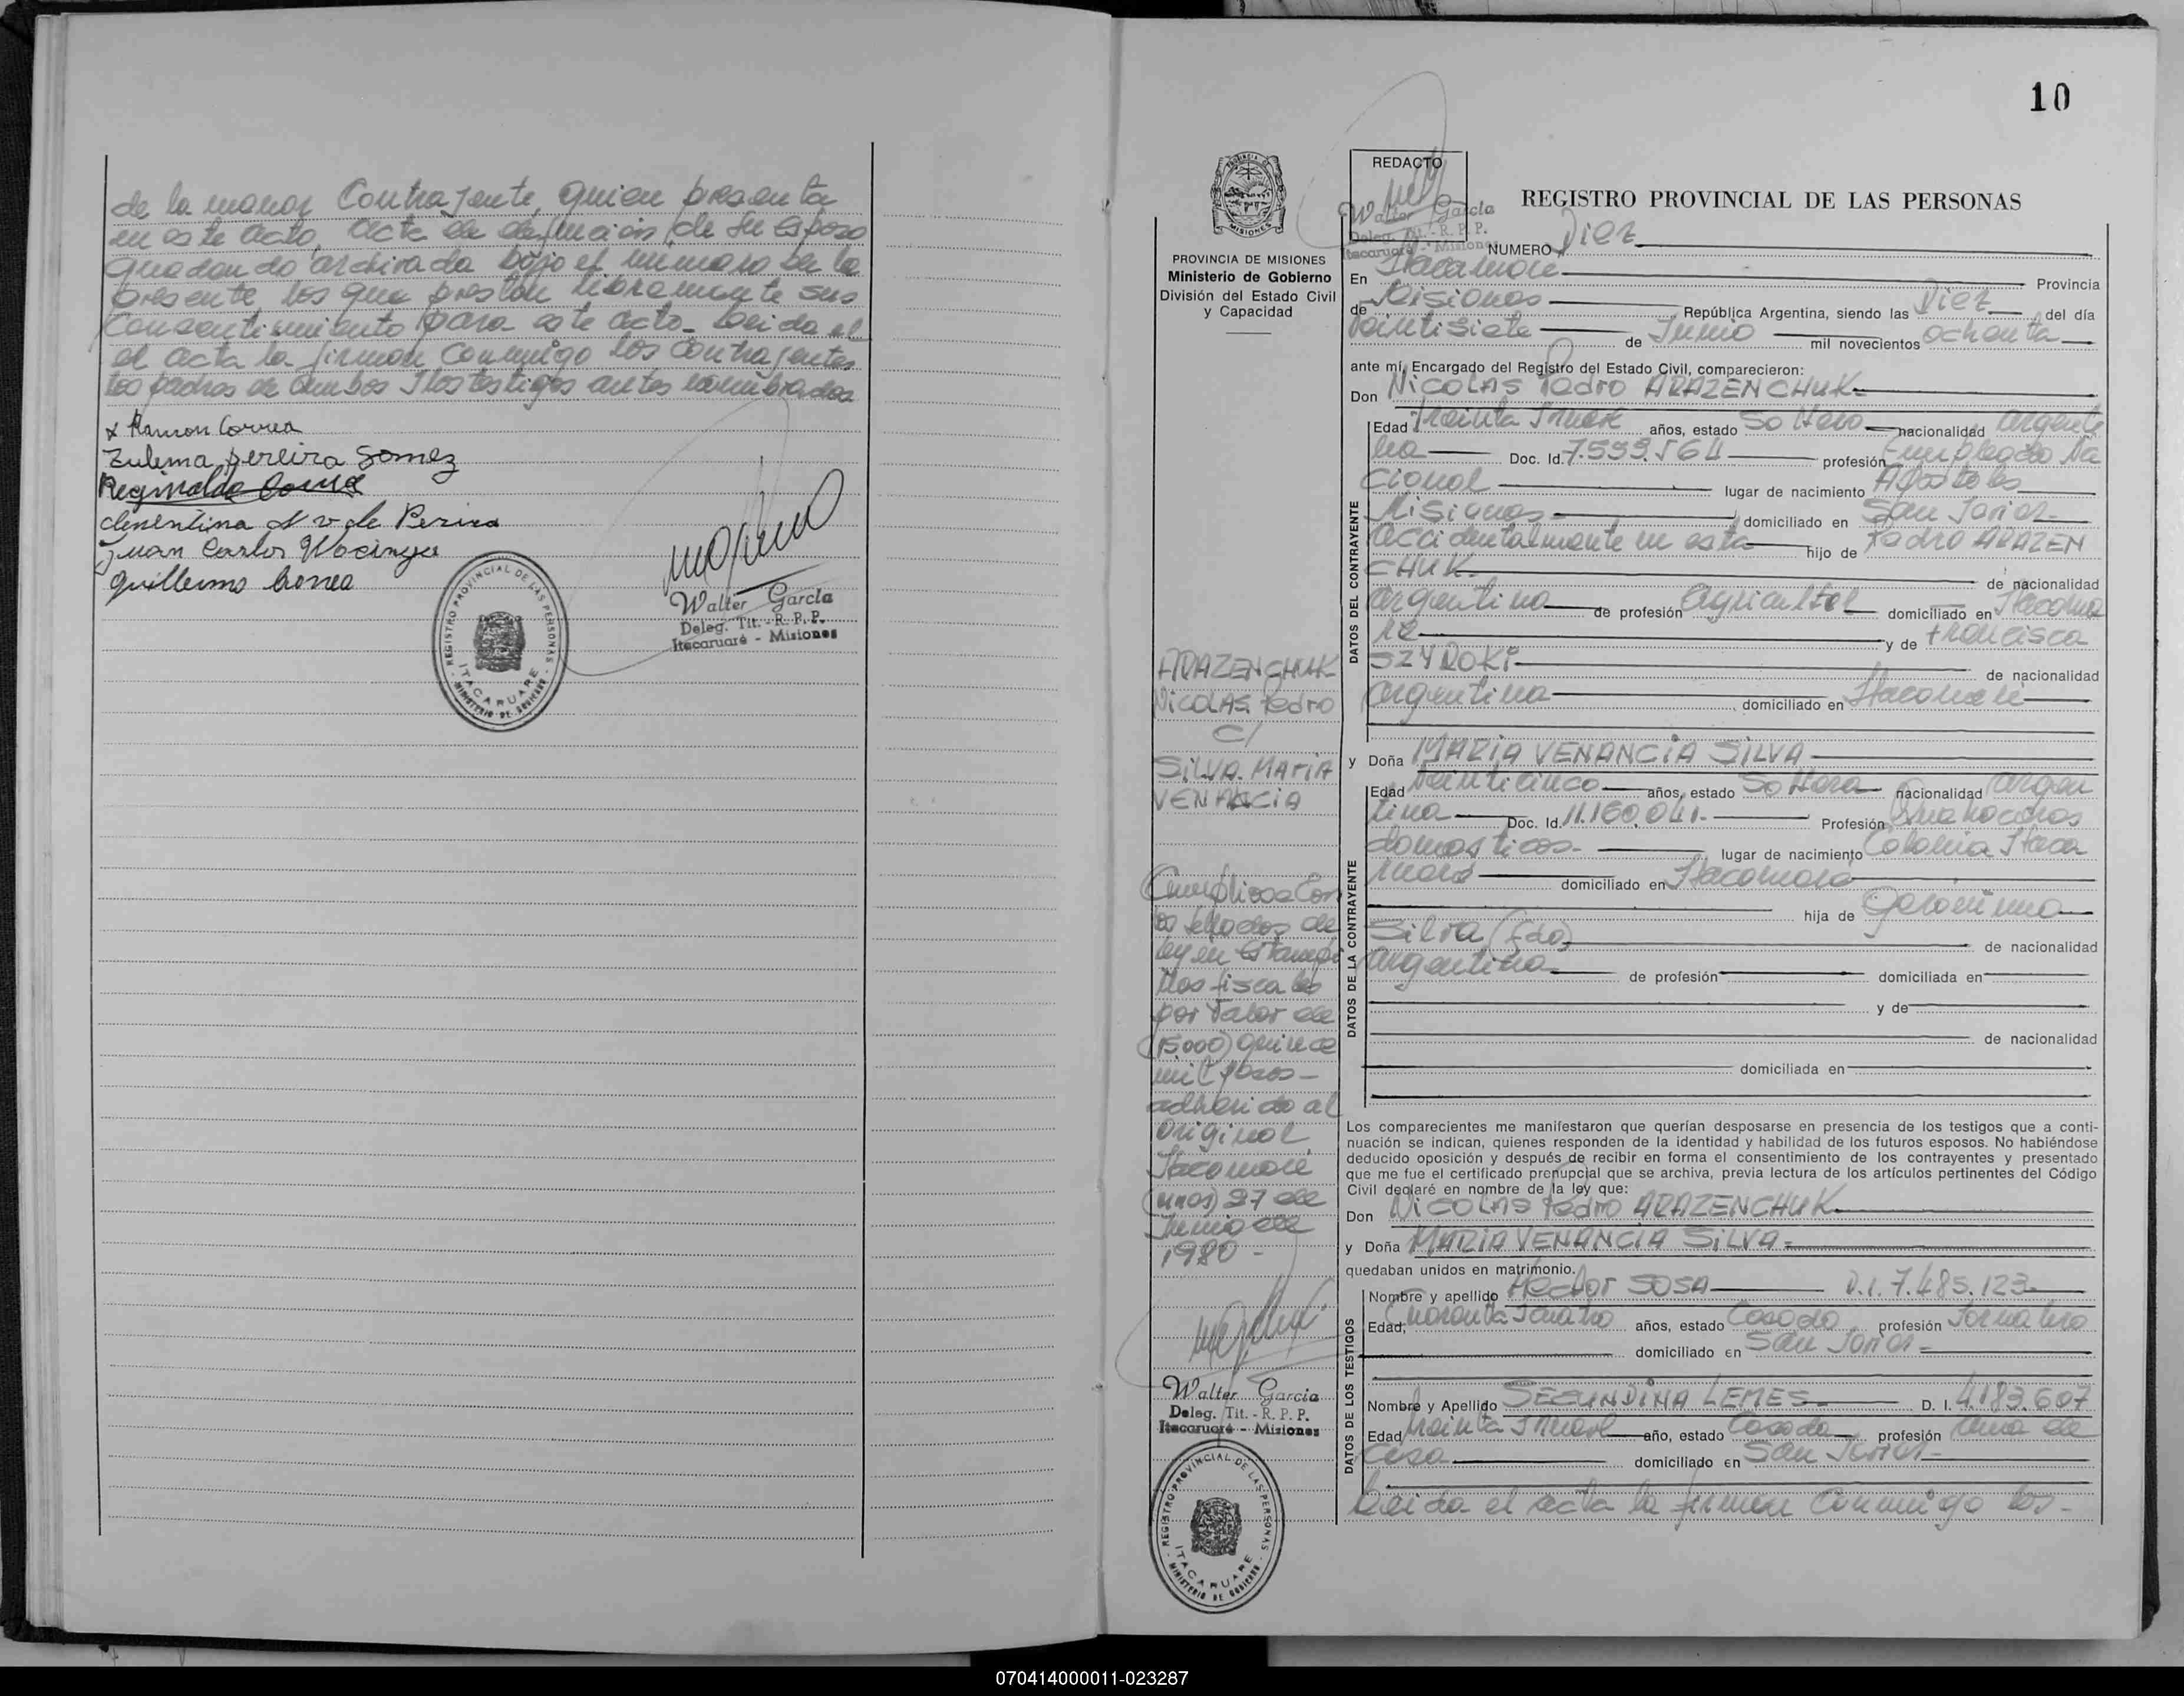 de la menor Contrajente, quien presenta
en este acto, acta de defuncion de su esposo
quedando archivada bajo el numero de la
presente los que prestan libremente sus
Consentimiento para este acto_ Leida el
el acta la firman conmigo los contrajentes
los padres de ambos y los testigos antes nombrados
x Ramon Correa
Zulema pereira Gomez
Reginaldo
clementina de
Juan Carlos
Guillermo Correa
Walter García
Deleg. Tit. - R. P. P.
Itacaruaré - Misiones
REGISTRO PROVINCIAL DE LAS PERSONAS
ITACARUARE
MINISTERIO DE GOBIERNO
10
MISIONES
PROVINCIA DE MISIONES
Ministerio de Gobierno
División del Estado Civil
y Capacidad
REDACTO
Walter García
Deleg. Tit. - R. P. P.
Itacaruaré - Misiones
REGISTRO PROVINCIAL DE LAS PERSONAS
NUMERO Diez
En Itacaruare Provincia
de Misiones República Argentina, siendo las Diez del día
veintisiete de Junio mil novecientos ochenta
ante mí, Encargado del Registro del Estado Civil, comparecieron:
Don NicoLAS Pedro ARAZENCHUK
DATOS DEL CONTRAYENTE
Edad treinta y nueve años, estado Soltero nacionalidad argenti
na Doc. Id. 7.599.564 profesión Empleado Na
cional lugar de nacimiento Apostoles
Misiones domiciliado en San Javier
accidentalmente en esta hijo de Pedro ARAZEN
CHUK de nacionalidad
argentina de profesión agricultor domiciliado en Itacarua
re y de Francisca
SZYROKI de nacionalidad
argentina domiciliado en Itacaruare
y Doña MARIA VENANCIA SILVA
DATOS DE LA CONTRAYENTE
Edad veinticinco años, estado Soltera nacionalidad argen
tina Doc. Id. 11.160.041 Profesión Quehaceres
domesticos lugar de nacimiento Colonia Itaca
ruare domiciliado en Itacaruare
hija de Geronima
Silva (fdo) de nacionalidad
argentina de profesión domiciliada en
y de
de nacionalidad
domiciliada en
Los comparecientes me manifestaron que querían desposarse en presencia de los testigos que a conti-
nuación se indican, quienes responden de la identidad y habilidad de los futuros esposos. No habiéndose
deducido oposición y después de recibir en forma el consentimiento de los contrayentes y presentado
que me fue el certificado prenupcial que se archiva, previa lectura de los artículos pertinentes del Código
Civil declaré en nombre de la ley que:
Don NicoLAS Pedro ARAZENCHUK
y Doña MARIA VENANCIA SILVA
quedaban unidos en matrimonio.
DATOS DE LOS TESTIGOS
Nombre y apellido Hector SOSA D.I. 7.485.123
Edad, cuarenta y cuatro años, estado Casado profesión Jornalero
domiciliado en San Javier
Nombre y Apellido SEGUNDINA LEMES D. I. 4.183.607
Edad treinta y nueve año, estado Casada profesión Ama de
casa domiciliado en San Javier
Leida el acta la firman conmigo los-
ARAZENCHUK
NicoLAS Pedro
C/
SILVA. MARIA
VENANCIA
Cumplióse Con
los sellados de
ley en Estampi
llas fiscales
por valor de
(15.000) quince
mil pesos-
adherido al
Original
Itacaruare
(mnes) 27 de
Junio de
1980 -
Walter García
Deleg. Tit. - R. P. P.
Itacaruaré - Misiones
REGISTRO PROVINCIAL DE LAS PERSONAS
ITACARUARE
MINISTERIO DE GOBIERNO
070414000011-023287